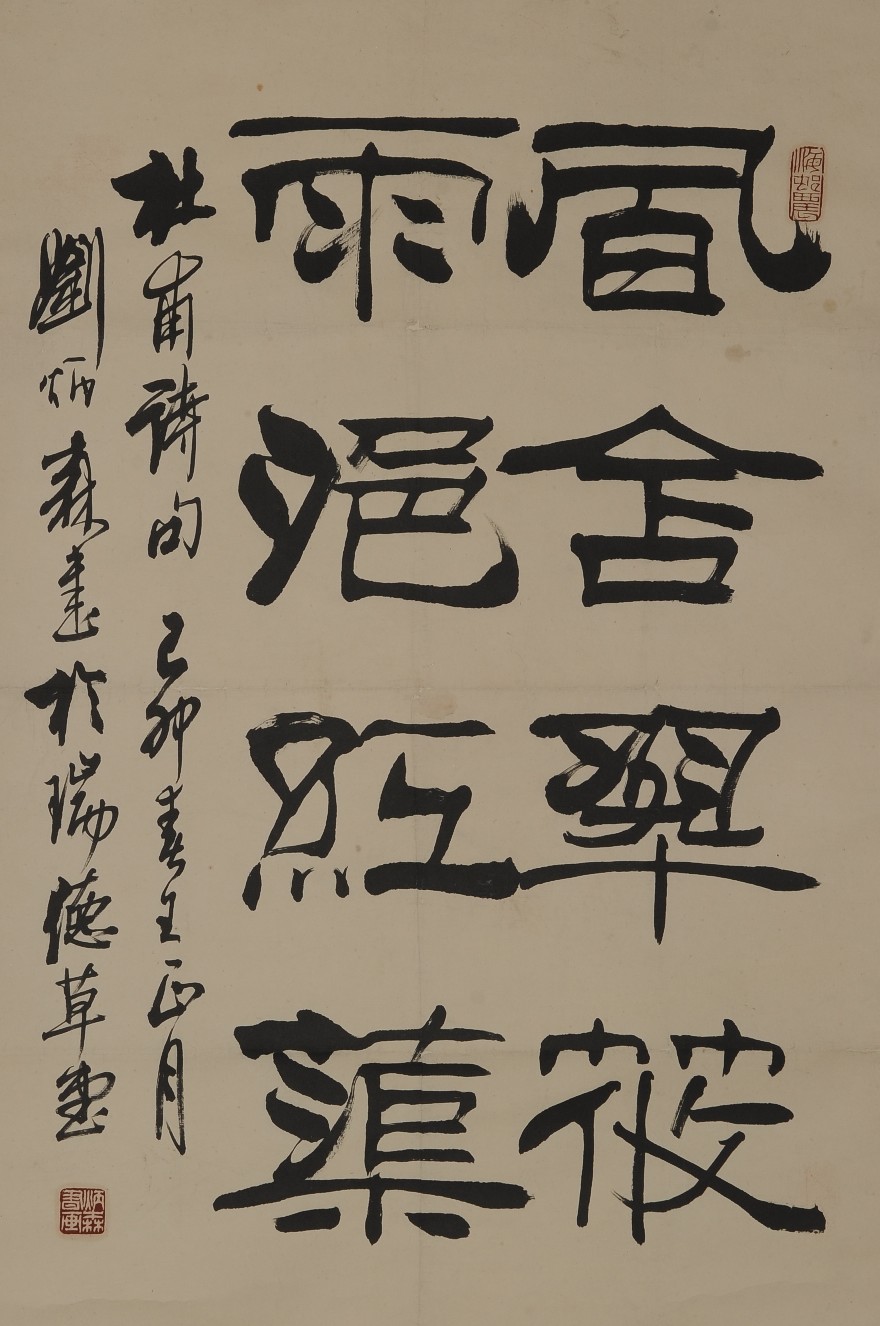 風含翠筱
雨浥紅蕖
杜甫詩句 己卯春王正月
劉炳森書於瑞德草堂
炳森
書画